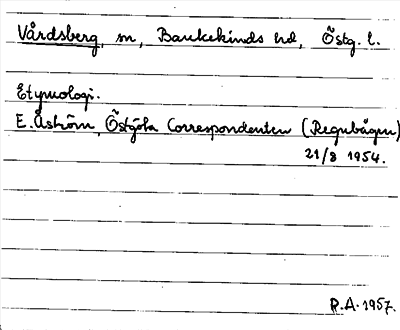 Vårdsberg, sn, Bankekinds hd, Östg. l.
Etymologi.
E. Åström, Östgöta Correspondenten (Regnbågen)
21/8 1954.
R.A. 1957.